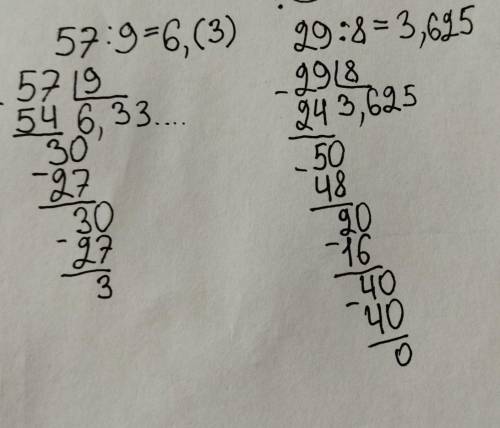 57:9=6,(3)
- 57 9
54 6,33....
30
-27
30
-27
3
29:8=3,625
- 29 8
24 3,625
-50
48
20
-16
40
-40
0